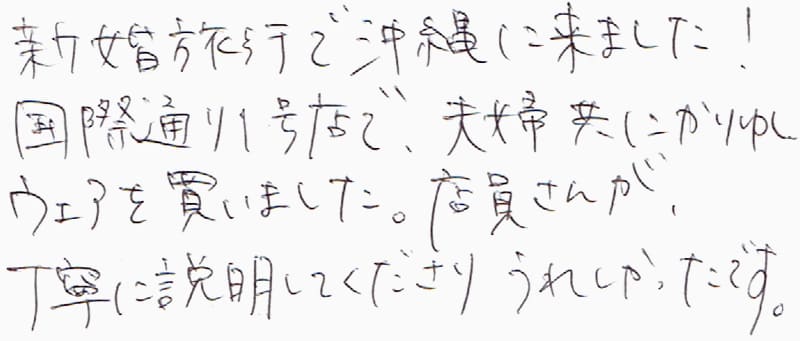 新婚旅行で沖縄に来ました！
国際通り1号店で、夫婦共にかりゆし
ウェアを買いました。店員さんが、
丁寧に説明してくださり うれしかったです。